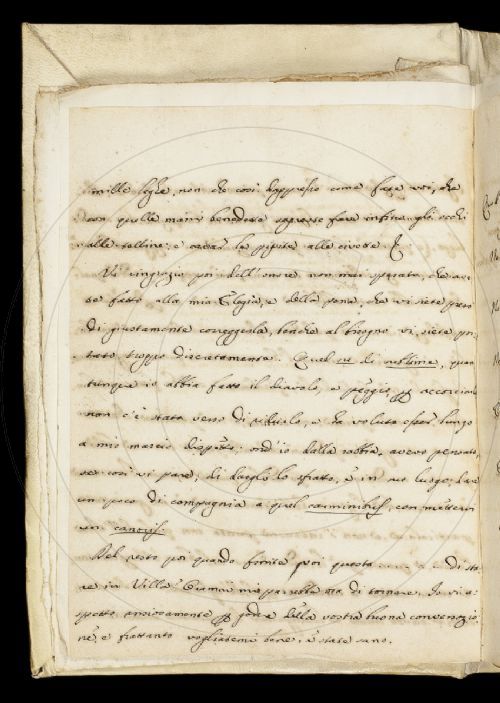 mille leghe, non che così dappresso come fate voi, che
con quelle mani benedette sapreste fare infino gli occhi
alle talline, e cavar la pipita alle civette.
Vi ringrazio poi dell'onore non mai sperato, che ave
te fatto alla mia Elegia, e della pena, che vi siete preso
di giustamente correggerla, benché al bisogno vi siete por
tato troppo discretamente. Quel di quan
tunque io abbia fatto il diavolo, e peggio, per accorciarlo
non c'è stato verso di ridurlo, e ha voluto esser lungo
a mio marcio dispetto: ond'io dalla rabbia avevo pensato,
se così vi pare, di dargli lo sfratto, e in suo luogo, fare
un poco di compagnia a quel carminibus, con metterci
un canoris.
Del resto poi quando finite poi questa di sta
re in Villa? mi par nella ora di tornare. Io vi a
spetto ansiosamente per goder della vostra buona conversazio
ne, e frattanto vogliatemi bene, e state sano.